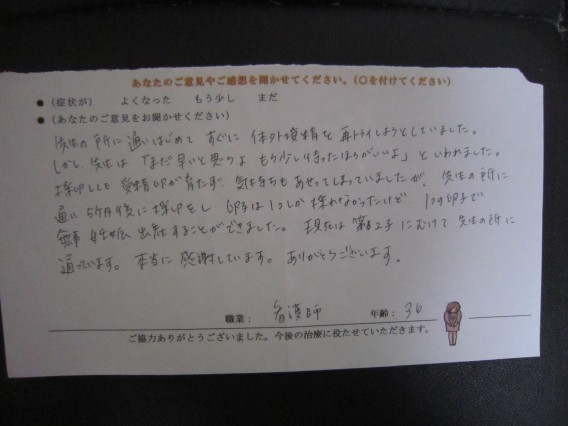 あなたのご意見やご感想を聞かせてください。(○を付けてください)
● (症状が) よくなった もう少し まだ
● (あなたのご意見をお聞かせください)
先生の所に通いはじめて すぐに 体外受精を再トライしようとしていました。
しかし、先生は「まだ早いと思うよ もう少し待ったほうがいいよ」といわれました。
採卵しても 受精卵が育たず 気持ちもあせってしまっていましたが、先生の所に
通い 5ヶ月後に採卵をし 卵子は1つしか採れなかったけど 1つの卵子で
無事 妊娠 出産することができました。 現在は 第2子にむけて 先生の所に
通っています。 本当に 感謝しています。 ありがとうございます。
職業: 看護師 年齢: 36
ご協力ありがとうございました。今後の治療に役たせていただきます。